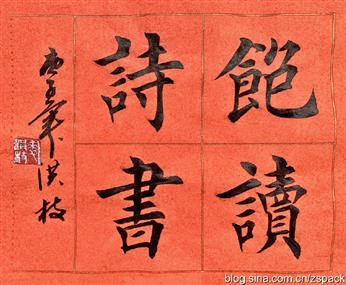 飽讀
詩書
庚子年 洪枝
blog.sina.com.cn/zspack